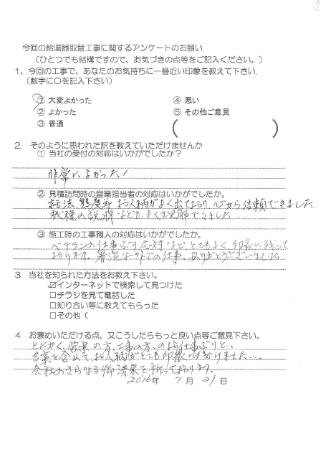 今回の給湯器取替工事に関するアンケートのお願い
(ひとつでも結構ですので、お気づきの点等をご記入ください。)
1、今回の工事で、あなたのお気持ちに一番近い印象を教えて下さい。
(数字に○を記入下さい)
① 大変よかった ④ 悪い
② よかった ⑤ その他ご意見
③ 普通 ( )
2. そのように思われた訳を教えていただけませんか
① 当社の受付の対応はいかがでしたか?
非常によかった!
② 見積訪問時の営業担当者の対応はいかがでしたか。
話法、態度等 お人柄がよく出ており、心から信頼できました
機種の説明などもよく理解できました
③ 施工時の工事職人の対応はいかがでしたか?
ベテランの仕事ぶり、応対などとてもよく印象に残って
おります。暑い中の仕事、ありがとうございました
3 当社を知られた方法をお教え下さい。
☑インターネットで検索して見つけた
□チラシを見て電話した
□知り合い等に教えてもらった
□その他(
4 お褒めいただける点、又こうしたらもっと良い点等ご意見下さい。
とにかく、営業の方、工事の方、のお仕事ぶりと、
言葉と含めて、お人柄がとても印象に
会社のさらなる御清栄を祈っております。
2016年 7月 21日